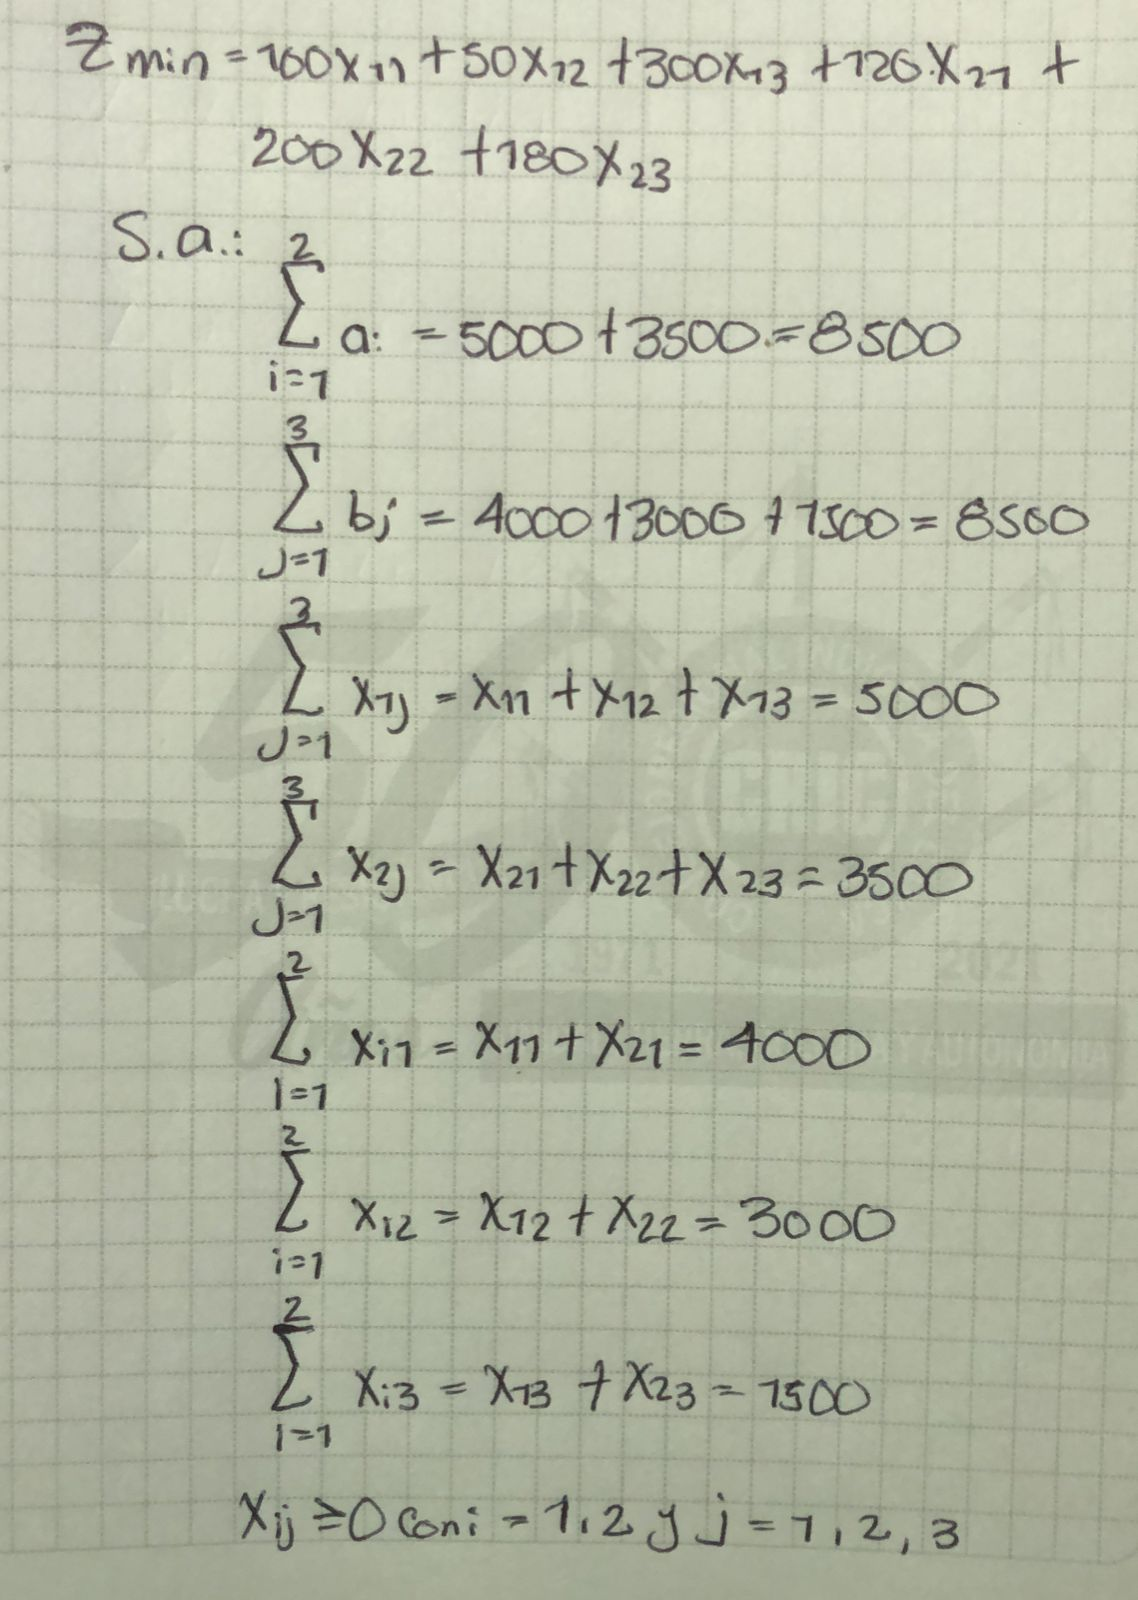 Zmin = 100x11 + 50x12 + 300x13 + 120x21 +
200x22 + 180x23
S.a.:
2
∑ ai = 5000 + 3500 = 8500
i=1
3
∑ bj = 4000 + 3000 + 1500 = 8500
J=1
3
∑ x1j = x11 + x12 + x13 = 5000
J=1
3
∑ x2j = x21 + x22 + x23 = 3500
J=1
2
∑ xi1 = x11 + x21 = 4000
i=1
2
∑ xi2 = x12 + x22 = 3000
i=1
2
∑ xi3 = x13 + x23 = 1500
i=1
xij ≥ 0 con i = 1,2 y j = 1, 2, 3